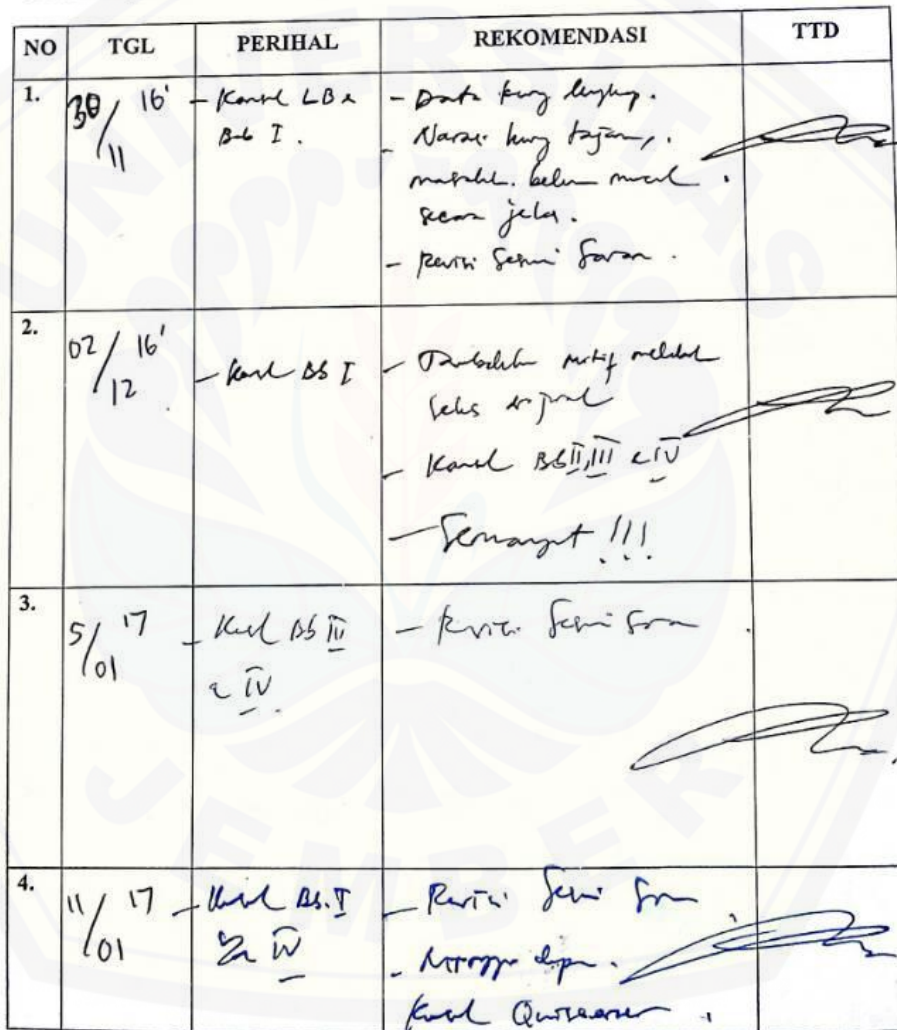 UNIVERSITAS
JEMBER
NO TGL PERIHAL REKOMENDASI TTD
1. 30/11 16' - Konsul LB & - Data kurg lengkap.
Bab I. - Narasi kurg tajam,
masalah. belum muncul
secara jelas.
- Revisi Sesuai Saran.
2. 02/12 16' - Konsul Bb I - Tambahkan motif melakukan
seks
- Konsul Bb II, III & IV
- Semangat !!!
3. 5/01 17 - Konsul Bb III - Revisi Sesuai Saran
& IV
4. 11/01 17 - Konsul Bb. I - Revisi Sesuai Saran
IV - Minggu depan.
Konsul Quisioner.